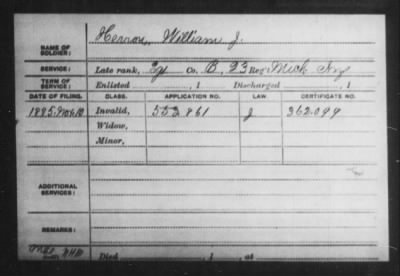 NAME OF SOLDIER: Herron, William J.
SERVICE: Late rank, Co. B, 23 Reg't Mich Inf
TERM OF SERVICE: Enlisted , 1 Discharged , 1
DATE OF FILING. CLASS. APPLICATION NO. LAW. CERTIFICATE NO.
1885 Invalid, 552.861 J 362.099
Widow,
Minor,
ADDITIONAL SERVICES:
REMARKS:
Died , 1 , at